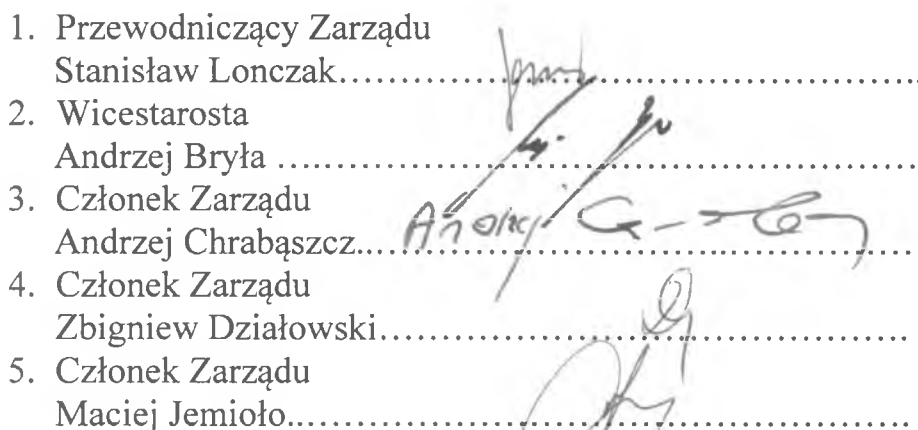 1. Przewodniczący Zarządu
Stanisław Lonczak..............................................
2. Wicestarosta
Andrzej Bryła ....................................................
3. Członek Zarządu
Andrzej Chrabąszcz...Andrzej..............................
4. Członek Zarządu
Zbigniew Działowski..........................................
5. Członek Zarządu
Maciej Jemioło...................................................